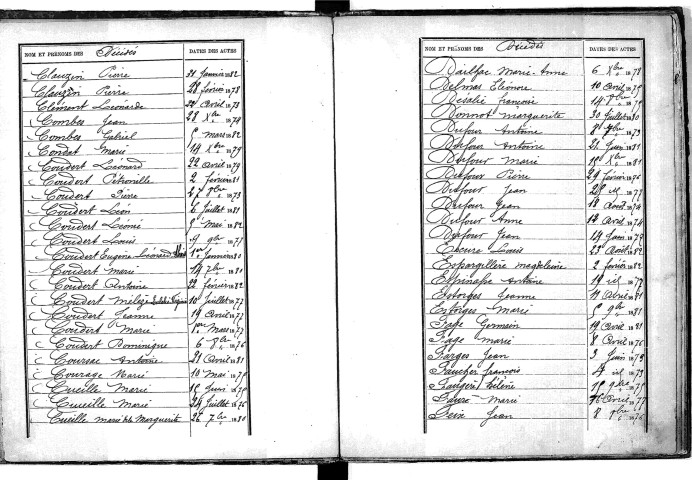 NOM ET PRÉNOMS DES Décédés DATES DES ACTES
Clauzon Pierre 31 Janvier 1882
Clauzon Pierre 28 février 1878
Clément Léonarde 22 Avril 1878
Combes Jean 28 Xbre 1874
Combes Gabriel mars 1882
Condat Marie 14 Xbre 1879
Coudert Léonard 22 Avril 1879
Coudert Pétronille 2 février 1881
Coudert Pierre 1873
Coudert Léon 6 Juillet 1881
Coudert Léonie Mai 1882
Coudert Louis 9bre 1877
Coudert Eugène Léonard 1er Janvier 1880
Coudert Marie 14 7bre 1880
Coudert Antoine 22 février 1882
Coudert 10 Juillet 1877
Coudert Jeanne 19 Avril 1877
Coudert Marie 1er Mars 1877
Coudert Dominique 6 1876
Coursac Antoine 21 Avril 1881
Courage Marie 10 Mai 1879
Cureille Marie 15 Juin 1875
Cureille Marie 24 Juillet 1876
Cureille Marie dite Marguerite 26 7bre 1880
NOM ET PRÉNOMS DES Décédés DATES DES ACTES
Dailhac Marie-Anne 6 Xbre 1878
Delmas Eléonore 10 Avril 1879
Désalie françoise 14 1879
Donnot Marguerite 30 Juillet 1880
Dufour Antoine 1873
Dufour Antoine 21 Juin 1881
Dufour Marie Xbre 1881
Dufour Pierre 29 février 1876
Dufour Jean 1877
Dufour Jean 18 Août 1874
Dufour Anne 12 Avril 1874
Dufour Jean 14 Juin 1879
Escure Louis 23 Août 1882
Espargillère Magdeleine 2 février 1882
Espinasse Antoine 19 1877
Estorges Jeanne 11 Avril 1881
Estorges Marie 9bre 1881
Fage Germain 19 Avril 1881
Fage Marie 8 Avril 1876
Farges Jean 3 Juin 1873
Faucher françois 4 1873
Faugère hélène 9bre 1875
Faure Marie 26 Avril 1877
Feix Jean 8 1876